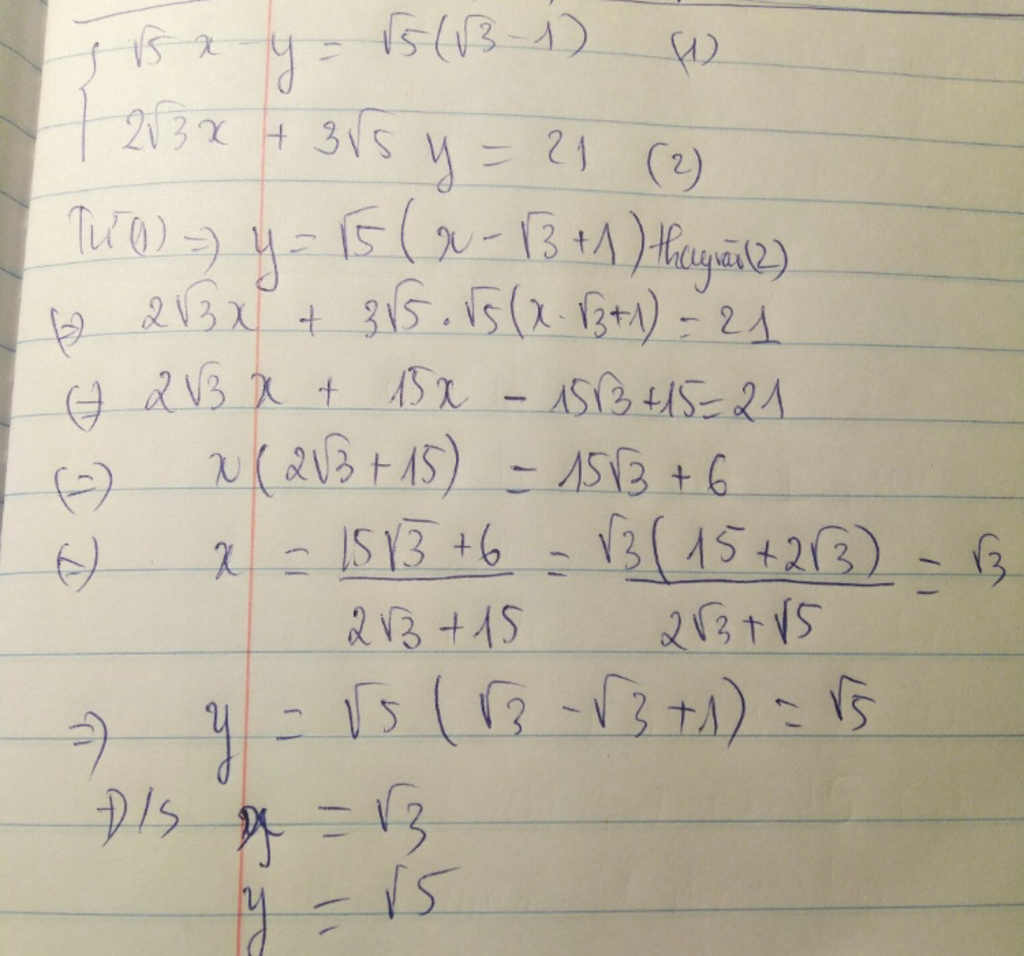 { √5 x - y = √5(√3-1) (1)
2√3x + 3√5 y = 21 (2)
Từ (1) => y = √5 ( x - √3 + 1 ) thay vào (2)
(=) 2√3x + 3√5 . √5 (x - √3+1) = 21
(=) 2√3 x + 15x - 15√3 +15 = 21
(=) x ( 2√3 + 15) = 15√3 + 6
(=) x = (15√3 + 6)/(2√3 + 15) = √3( 15 + 2√3)/(2√3 + √5) = √3
=) y = √5 ( √3 - √3 +1) = √5
Đ/S x = √3
y = √5